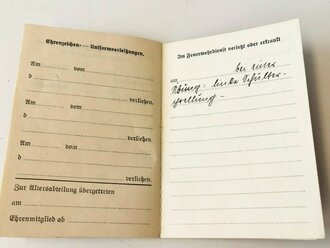 Ehrenzeichen- — Uniformverleihungen.
Am vom
d
verliehen.
Am vom
d
verliehen.
Am vom
d
verliehen.
Am vom
d
verliehen.
Zur Altersabteilung übergetreten
am
Ehrenmitglied ab
Im Feuerwehrdienst verletzt oder erkrankt
am bei einer
Übung: linke Schulter-
prellung -